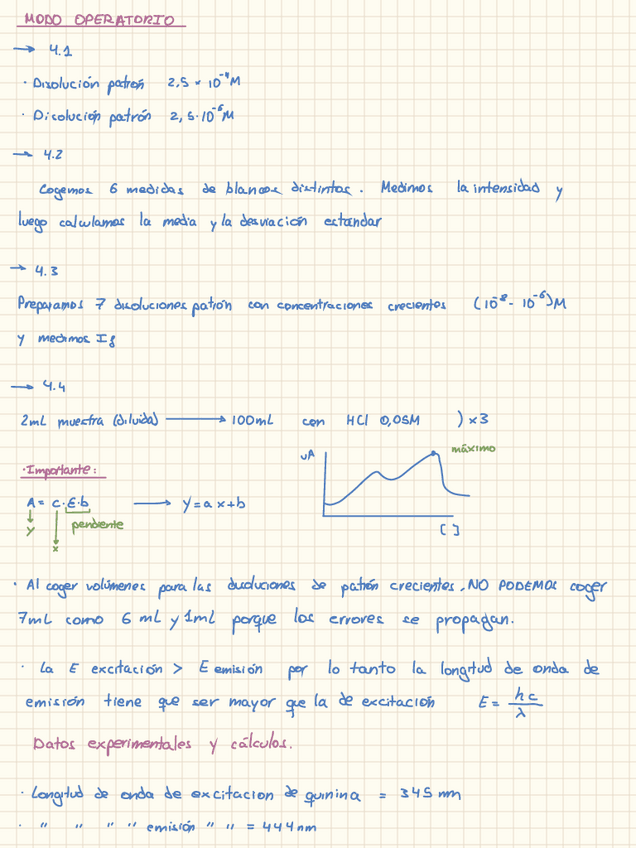 MODO OPERATORIO
→ 4.1
· Disolución patrón 2,5 × 10⁻⁴M
· Disolución patrón 2,5·10⁻⁶M
→ 4.2
Cogemos 6 medidas de blancos distintos. Medimos la intensidad y
luego calculamos la media y la desviación estandar
→ 4.3
Preparamos 7 disoluciones patrón con concentraciones crecientes (10⁻⁸ - 10⁻⁶)M
y medimos If
→ 4.4
2mL muestra (diluida) → 100mL con HCl 0,05M ) ×3
· Importante:
A = c·E·b → y = a x + b
y
pendiente
x
uA
máximo
[ ]
· Al coger volúmenes para las disoluciones de patrón crecientes, NO PODEMOS coger
7mL como 6 mL y 1mL porque los errores se propagan.
· La E excitación > E emisión por lo tanto la longitud de onda de
emisión tiene que ser mayor que la de excitación E = hc/λ
Datos experimentales y cálculos.
· Longitud de onda de excitacion de quinina = 345 nm
· " " " " emisión " " = 444nm